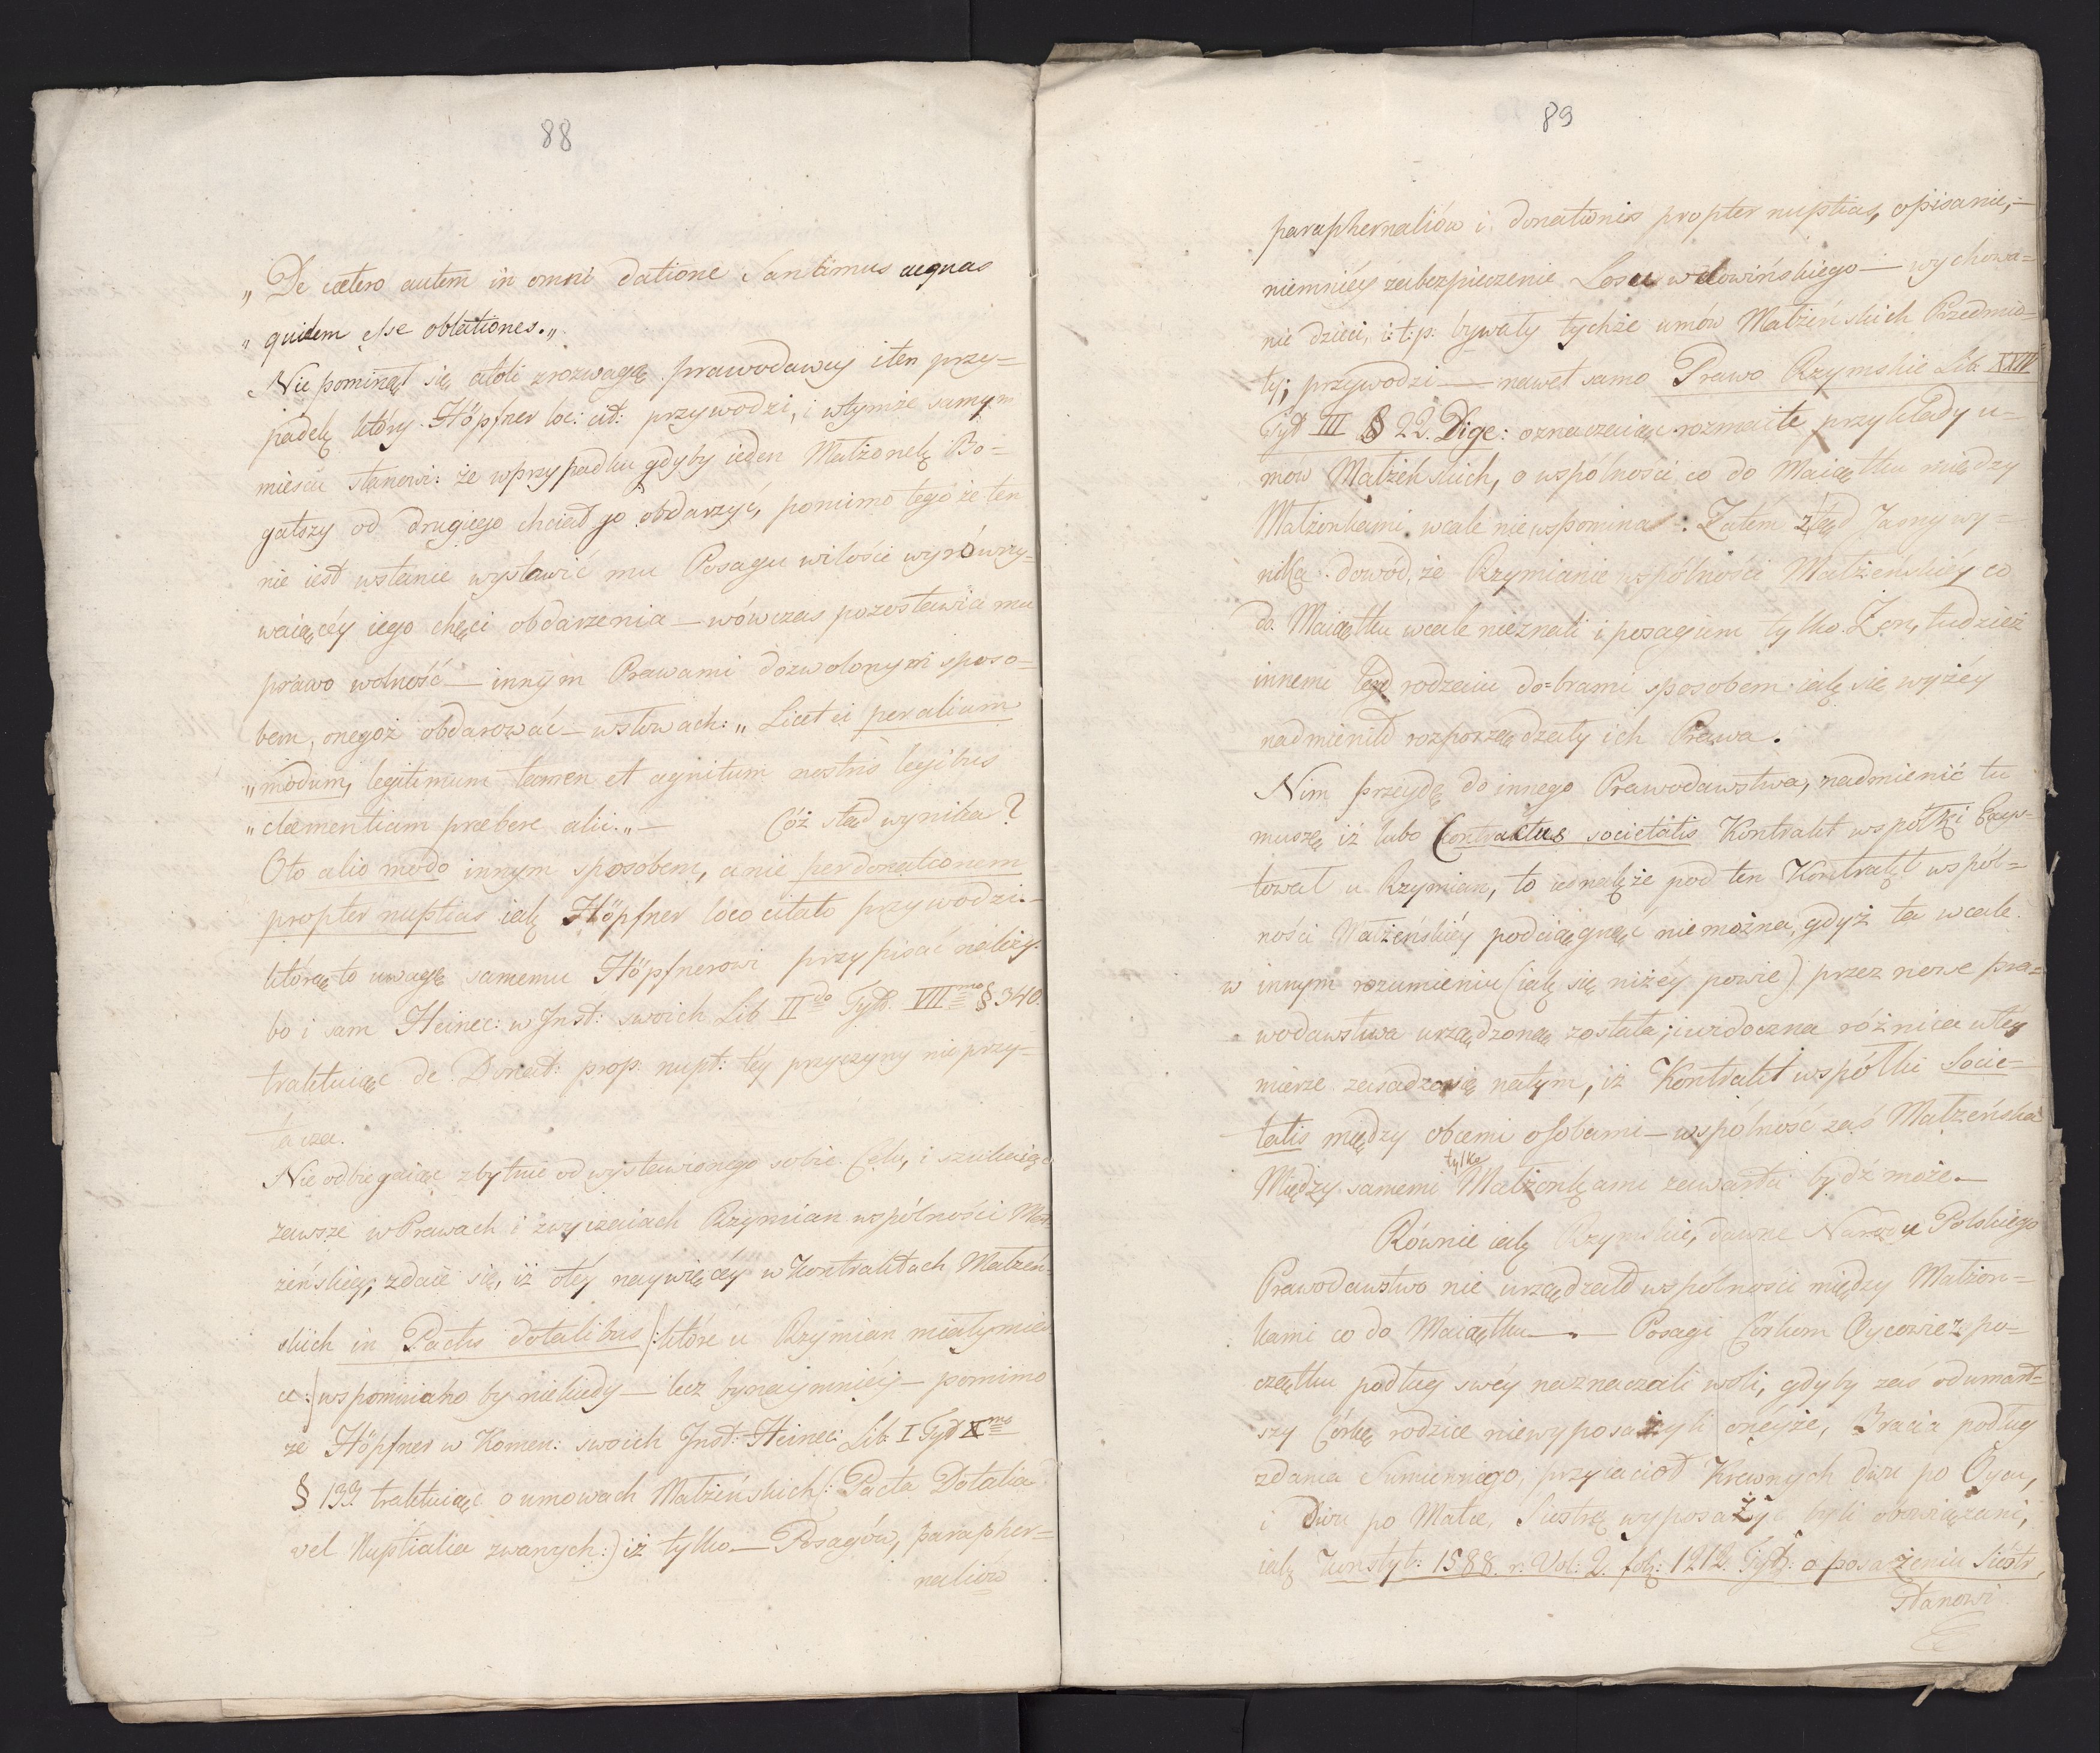 88
„De cætero autem in omni datione Sancimus aequas
„quidem esse oblationes.„
Nie pominął się atoli z rozwagą prawodawcy i ten przy=
padek który Höpfner loc: cit: przywodzi, i wtymże samym
miescu stanowi: że wprzypadku gdyby ieden Małżonek Bo=
gatszy od drugiego chciał go obdarzyć, pomimo tego że ten
nie iest wstanie wystawić mu Posagu wilości wyrówny=
waiącéy iego chęci obdarzenia — wówczas pozostawia mu
prawo wolność — innym Prawami dozwolonym sposo=
bem, onegoż obdarować — wsłowach: „Licet ei per alium
„modum, legitimum tamen et agnitum nostris legibus
„clæmentiam præbere alii.„ — Cóż stąd wynika?
Oto alio modo innym sposobem, a nie per donationem
propter nuptias iak Höpfner loco citato przywodzi. —
którą to uwagę samemu Höpfnerowi przypisać należy.
bo i sam Heinec: w Inst: swoich Lib IIdo Tyt. VIImo § 340.
traktuiąc de Donat: prop. nupt: téy przyczyny nie przy=
tacza.
Nie odbiegaiąc zbytnie od wystawionego sobie Celu, i szukaiąc
zawsze w Prawach i zwyczaiach Rzymian wspólności Mał
żeńskiéy, zdaie się, iż otéy naywięcéy w Kontraktach Małżeń=
skich in Pactis dotalibus /: które u Rzymian miały miéy
ce :/ wspomniano by niekiedy — lecz bynaymniéy — pomimo
że Höpfner w Komen: swoich Inst: Heinec: Lib. I Tyt Xmo
§ 139 traktuiąc o umowach Małżeńskich (: Pacta Dotalia
vel Nuptialia zwanych :) iż tylko — Posagów, parapher=
naliów
89
paraphernaliów i donationis propter nuptias, opisanie, —
niemniéy zabezpieczenie Losu wdowińskiego — wychowa=
nie dzieci, i: t: p. bywały tychże umów Małżeńskich Przedmio=
ty; przywodzi — nawet samo Prawo Rzymskie Lib. XXIV
Tyt III. § 22. Dige: oznaczaiąc rozmaite przykłady u=
mów Małżeńskich, o wspólności co do Maiątku między
Małżonkami wcale nie wspomina. Zatem ztąd Jasny wy=
nika dowód, że Rzymianie wspólności Małżeńskiéy co
do Maiątku wcale nieznali i posagiem tylko Żon, tudzież
innemi tego rodzaiu do=brami sposobem iak się wyżéy
nadmieniło rozporządzały ich Prawa.
Nim przeydę do innego Prawodawstwa, nadmienić tu
muszę iż lubo Contractus societatis Kontrakt wspołki Exys=
tował u Rzymian, to iednakże pod ten Kontrakt wspól=
ności Małżeńskiéy podciągnąć nie można, gdyż ta wcale
w innym rozumieniu (iak się niżéy powie) przez nowe pra=
wodawstwa urządzoną została; i widoczna różnica wtéy
mierze zasadza się natym, iż Kontrakt wspólki Socie=
tatis między obcemi osobami — wspólność zaś Małżeńska
Między samemi tylko Małżonkami zawarta bydź może. —
Równie iak Rzymskie, dawne Narodu Polskiego
Prawodawstwo nie urządzało wspólności między Małżon=
kami co do Maiątku — . — Posagi Córkom Oycowie z po=
czątku podług swéy naznaczali woli, gdyby zaś odumarł=
szy Córkę rodzice niewyposażyli onéyże, Bracia podług
zdania Sumiennego, przyiaciół Krewnych dwu po Oycu,
i Dwu po Matce, Siostrę wyposażyć byli obowiązani,
iak Konstyt: 1588. r: Vol: 2. fol: 1212. Tyt: o posażeniu Sióstr,
stanowi